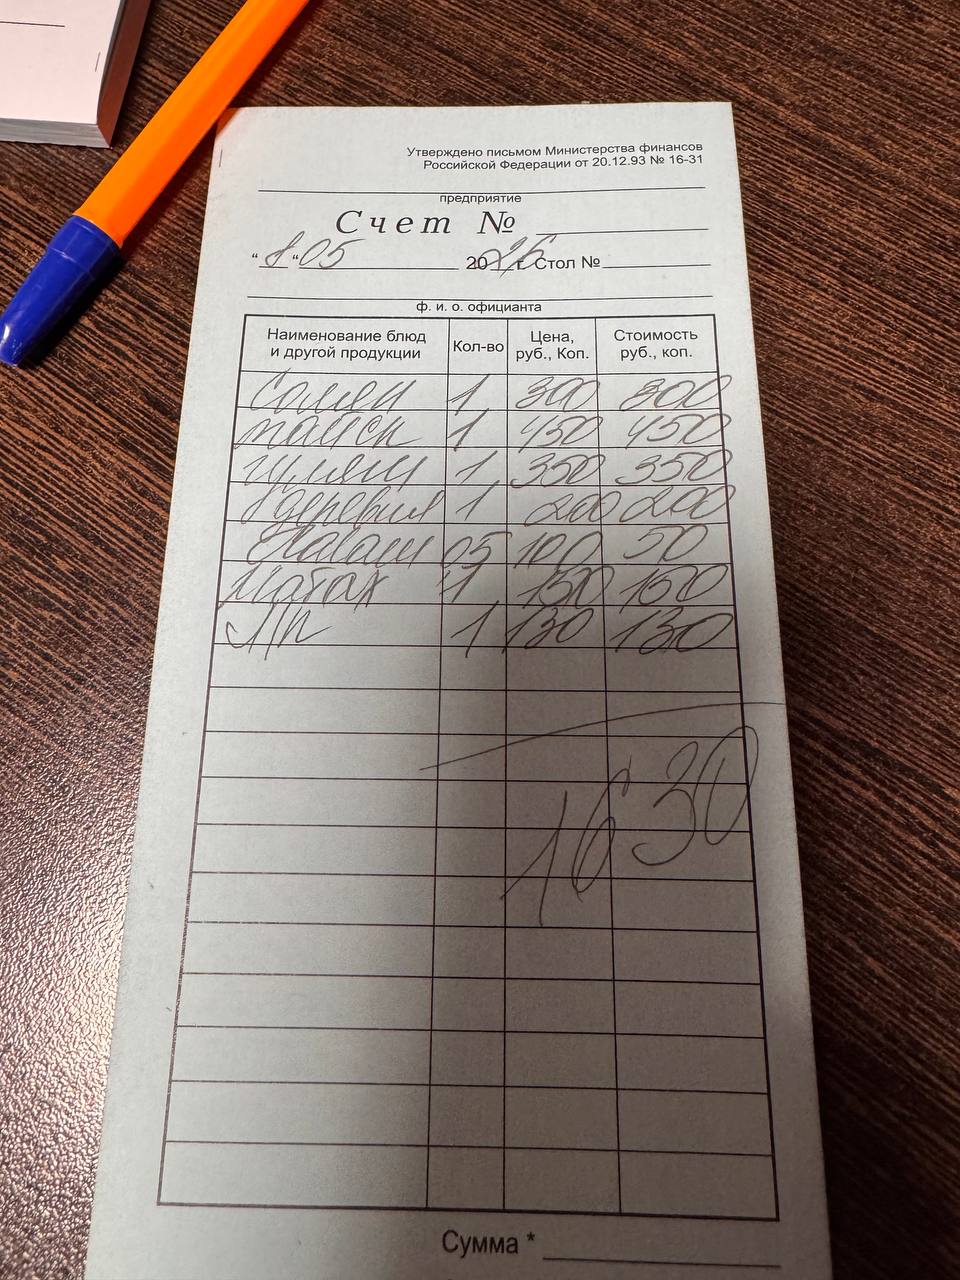 Утверждено письмом Министерства финансов
Российской Федерации от 20.12.93 № 16-31
предприятие
Счет №
“ 8 “ 05 2026 г. Стол №
ф. и. о. официанта
Наименование блюд и другой продукции Кол-во Цена, руб., Коп. Стоимость руб., коп.
Солян 1 300 300
1 450 450
гуляш 1 350 350
деревня 1 200 200
Лаваш 05 100 50
1 150 150
1 130 130
1630
Сумма *